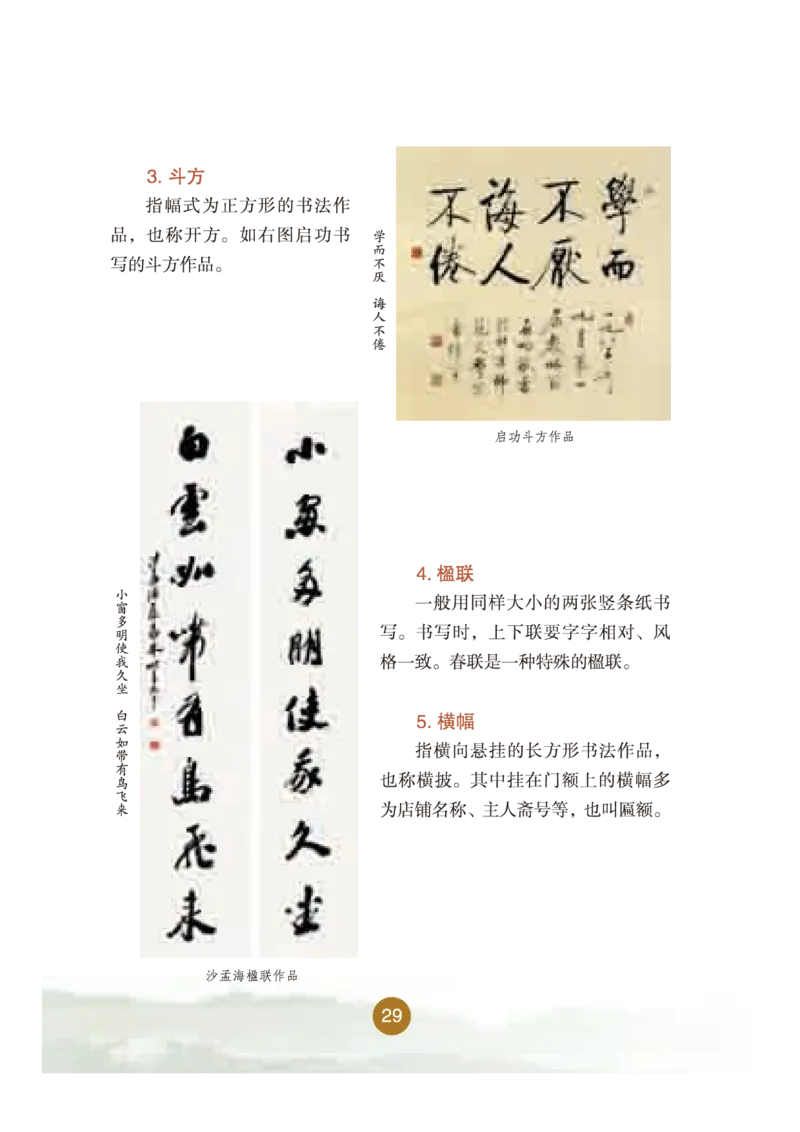 3. 斗方
指幅式为正方形的书法作
品，也称开方。如右图启功书
写的斗方作品。
学而不厌 诲人不倦
學而
不厭
誨人
不倦
启功斗方作品
小窗多明使我久坐 白云如带有鸟飞来
小窗多明使我久坐
白雲如帶有鳥飛来
沙孟海楹联作品
4. 楹联
一般用同样大小的两张竖条纸书
写。书写时，上下联要字字相对、风
格一致。春联是一种特殊的楹联。
5. 横幅
指横向悬挂的长方形书法作品，
也称横披。其中挂在门额上的横幅多
为店铺名称、主人斋号等，也叫匾额。
29